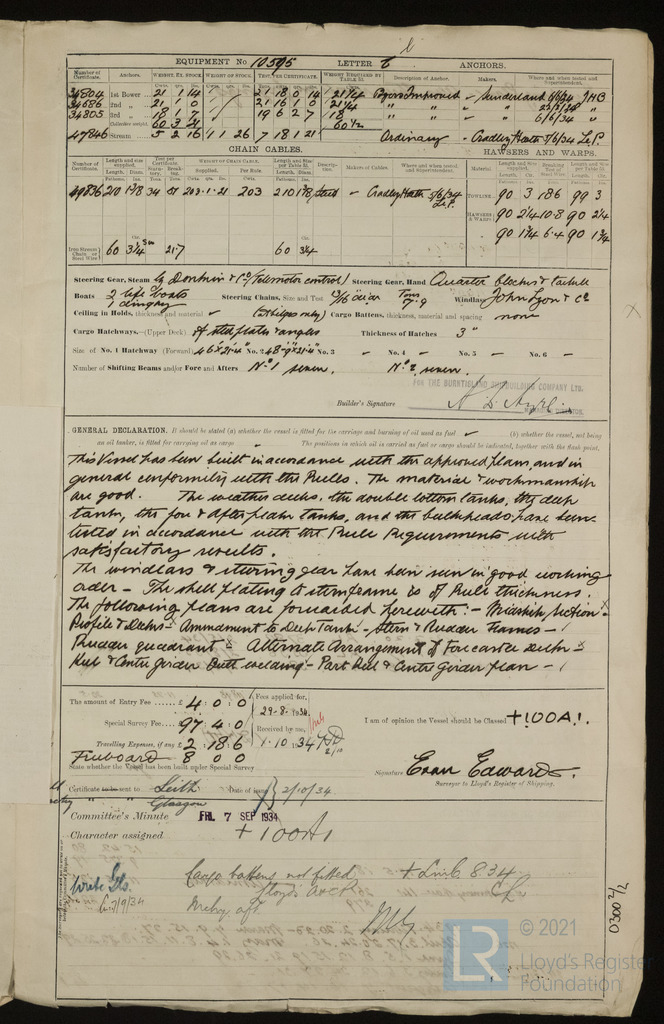 EQUIPMENT No 10595 LETTER ANCHORS.
Number of Certificate. Anchors. WEIGHT, EX. STOCK. WEIGHT OF STOCK. TEST, PER CERTIFICATE. WEIGHT REQUIRED BY TABLE 31. Description of Anchor. Makers. Where and when tested and Superintendent.
34804 1st Bower 21 1 14 21 18 0 14 21 1/4 Byers Improved Sunderland 6/6/34 JHB
34686 2nd 21 1 0 21 16 1 0 21 1/4
34805 3rd 18 1 7 19 6 2 7 18 6/6/34
Collective weight 60 3 21 60 1/2
47846 Stream 5 2 16 1 1 26 7 18 1 21 Ordinary Cradley Heath 5/6/34 Le.P.
CHAIN CABLES. HAWSERS AND WARPS.
49836 210 1 9/8 34 51 203-1-21 203 210 1 9/8 Steel Cradley Heath 5/6/34 Le.P.
TOWLINE 90 3 18.6 90 3
HAWSERS & WARPS 90 2 1/4 10.8 90 2 1/4
90 1 3/4 6.4 90 1 3/4
Iron Stream Chain or Steel Wire 60 3 1/4 21.7 60 3/4
Steering Gear, Steam by Donkin & Co (Telemotor control) Steering Gear, Hand Quarter blocks & tackle
Boats 2 life boats 1 dinghy Steering Chains, Size and Test 13/16 dia Tons 7.9 Windlass John Lyon & Co
Ceiling in Holds, thickness and material (Bilges only) Cargo Battens, thickness, material and spacing none
Cargo Hatchways.—(Upper Deck) of steel plates & angles Thickness of Hatches 3"
Size of No. 1 Hatchway (Forward) 46'x21'-4" No. 2 48'-9"x21'-4" No. 3 No. 4 No. 5 No. 6
Number of Shifting Beams and/or Fore and Afters No 1 seven. No 2 seven.
FOR THE BURNTISLAND SHIPBUILDING COMPANY LTD.
Builder's Signature
GENERAL DECLARATION. It should be stated (a) whether the vessel is fitted for the carriage and burning of oil used as fuel (b) whether the vessel, not being
an oil tanker, is fitted for carrying oil as cargo The positions in which oil is carried as fuel or cargo should be indicated, together with the flash point.
This Vessel has been built in accordance with the approved plans, and in
general conformity with the Rules. The material & workmanship
are good. The weather decks, the double bottom tanks, the deep
tank, the fore & after peak tanks, and the bulkheads have been
tested in accordance with the Rule Requirements with
satisfactory results.
The windlass & steering gear have been seen in good working
order - The shell plating @ sternframe is of Rule thickness.
The following plans are forwarded herewith:- Midship Section -
Profile & Decks - Amendment to Deep Tank - Stern & Rudder Frames -
Rudder quadrant - Alternate Arrangement of Forecastle Deck -
Keel & Centre Girder Butt welding - Part Keel & Centre Girder plan -
The amount of Entry Fee £ 4 : 0 : 0 Fees applied for,
Special Survey Fee £ 97 : 4 : 0 29-8-1934
Travelling Expenses, if any £ 2 : 18 : 6 Received by me, 1.10.1934
Freeboard 8 0 0
State whether the Vessel has been built under Special Survey
I am of opinion the Vessel should be Classed +100A1.
Signature Evan Edwards.
Surveyor to Lloyd's Register of Shipping.
Certificate to be sent to Leith Date of issue 2/10/34
Glasgow
Committee's Minute FRI. 7 SEP 1934
Character assigned + 100A1
Cargo battens not fitted + LMC 8.34
Lloyds A&CP. CL
Mchy aft.
Write Gls.
7/9/34
0300 2/2
LR © 2021
Lloyd's Register
Foundation